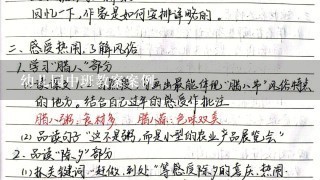 回忆一下，作家是如何安排详略的。
二、感受热闹，了解风俗
1. 学习“腊八”部分
画出最能体现“腊八节”风俗特点
的地方。结合自己过年的感受作批注
腊八粥：食材多 腊八蒜：色味双美
(2) 品读句子“这不是粥，而是小型的农业产品展览会”
2. 品读“除夕”部分
(1) 抓关键词“赶做、到处”等感受除夕的喜庆、热闹
幼儿园中班教案案例